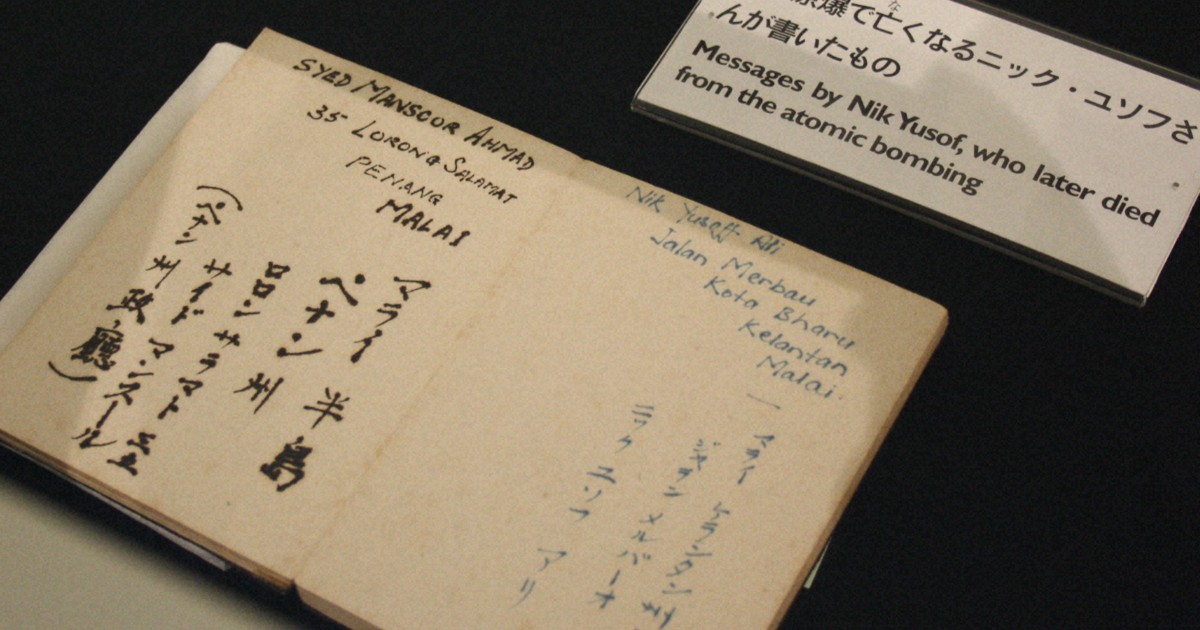 SYED MANSOUR AHMAD
35 LORONG SALAMAT
PENANG
MALAI
マライ 半島
ペナン 州
ロロン サラマト 三五
サイド マンスール
(ペナン州政廳)
Nik Yusoff Ali
Jalan Merbau
Kota Bharu
Kelantan
Malai.
マライ ケランタン州
ジャラン メルバーオ
ニック ユソフ アリ
原爆で亡くなるニック・ユソフさ
んが書いたもの
Messages by Nik Yusof, who later died
from the atomic bombing